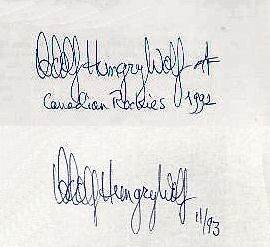 Adolf Hungry Wolf
Canadian Rockies 1992
Adolf Hungry Wolf
11/93